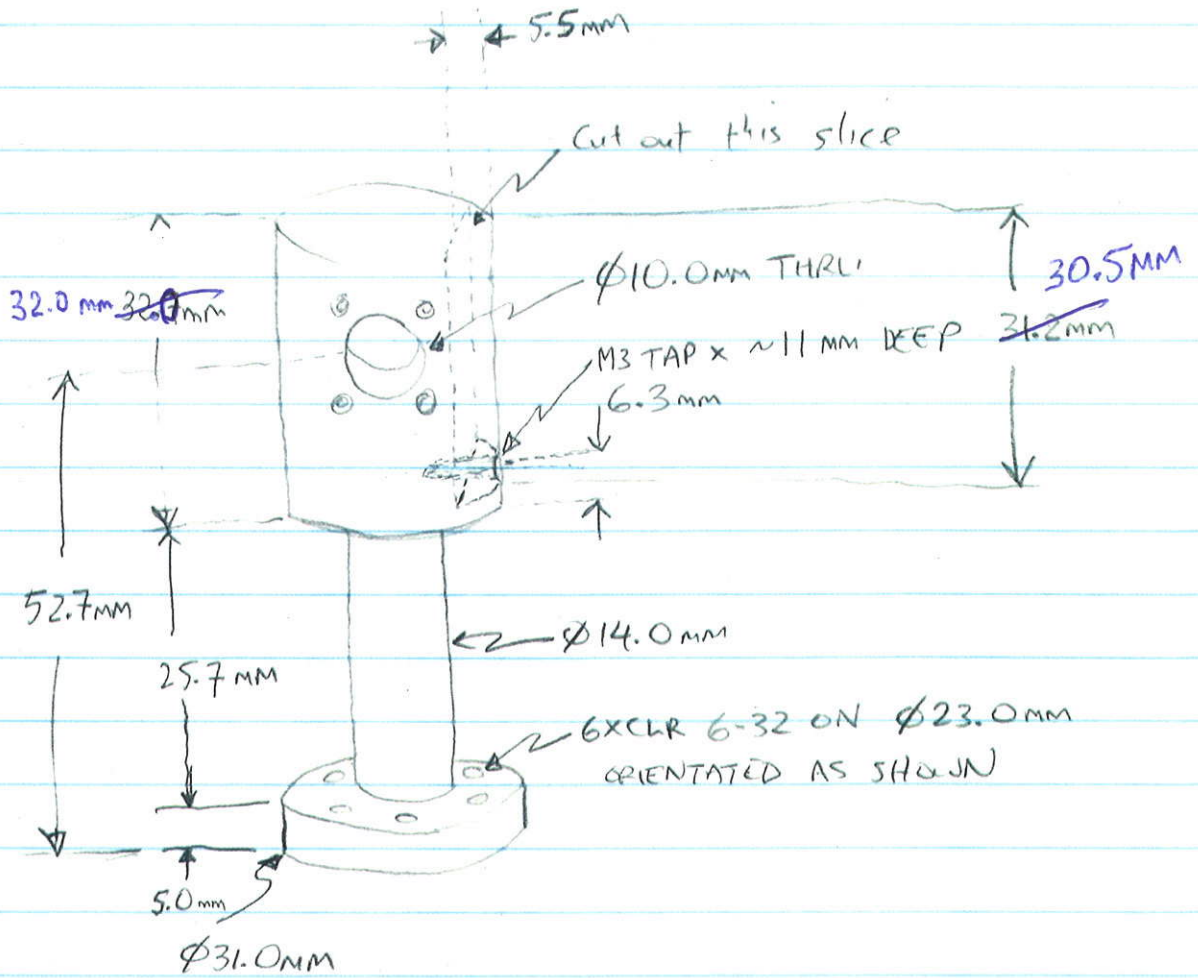 5.5mm
Cut out this slice
Ø10.0mm THRU
30.5MM
32.0 mm 32.0mm
M3 TAP x ~11 MM DEEP 31.2mm
6.3mm
52.7MM
Ø14.0mm
25.7 MM
6XCLR 6-32 ON Ø23.0mm
ORIENTATED AS SHOWN
5.0mm
Ø31.0MM